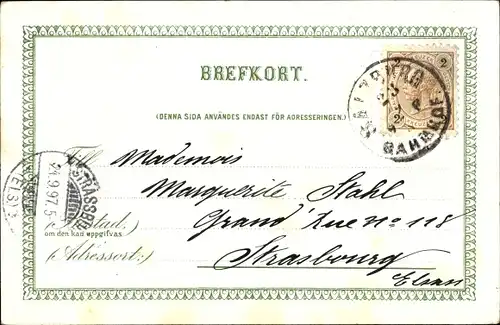 BREFKORT.
(DENNA SIDA ANVÄNDES ENDAST FÖR ADRESSERINGEN.)
2
SALZBURG
BAHNHOF
2
Till Mademois
Marguerite Stahl
(Bostad.
Grand Rue No 118
om den kan uppgifvas
(Adressort:)
Strasbourg
Elsass
STRASSBURG
21.9.97.5